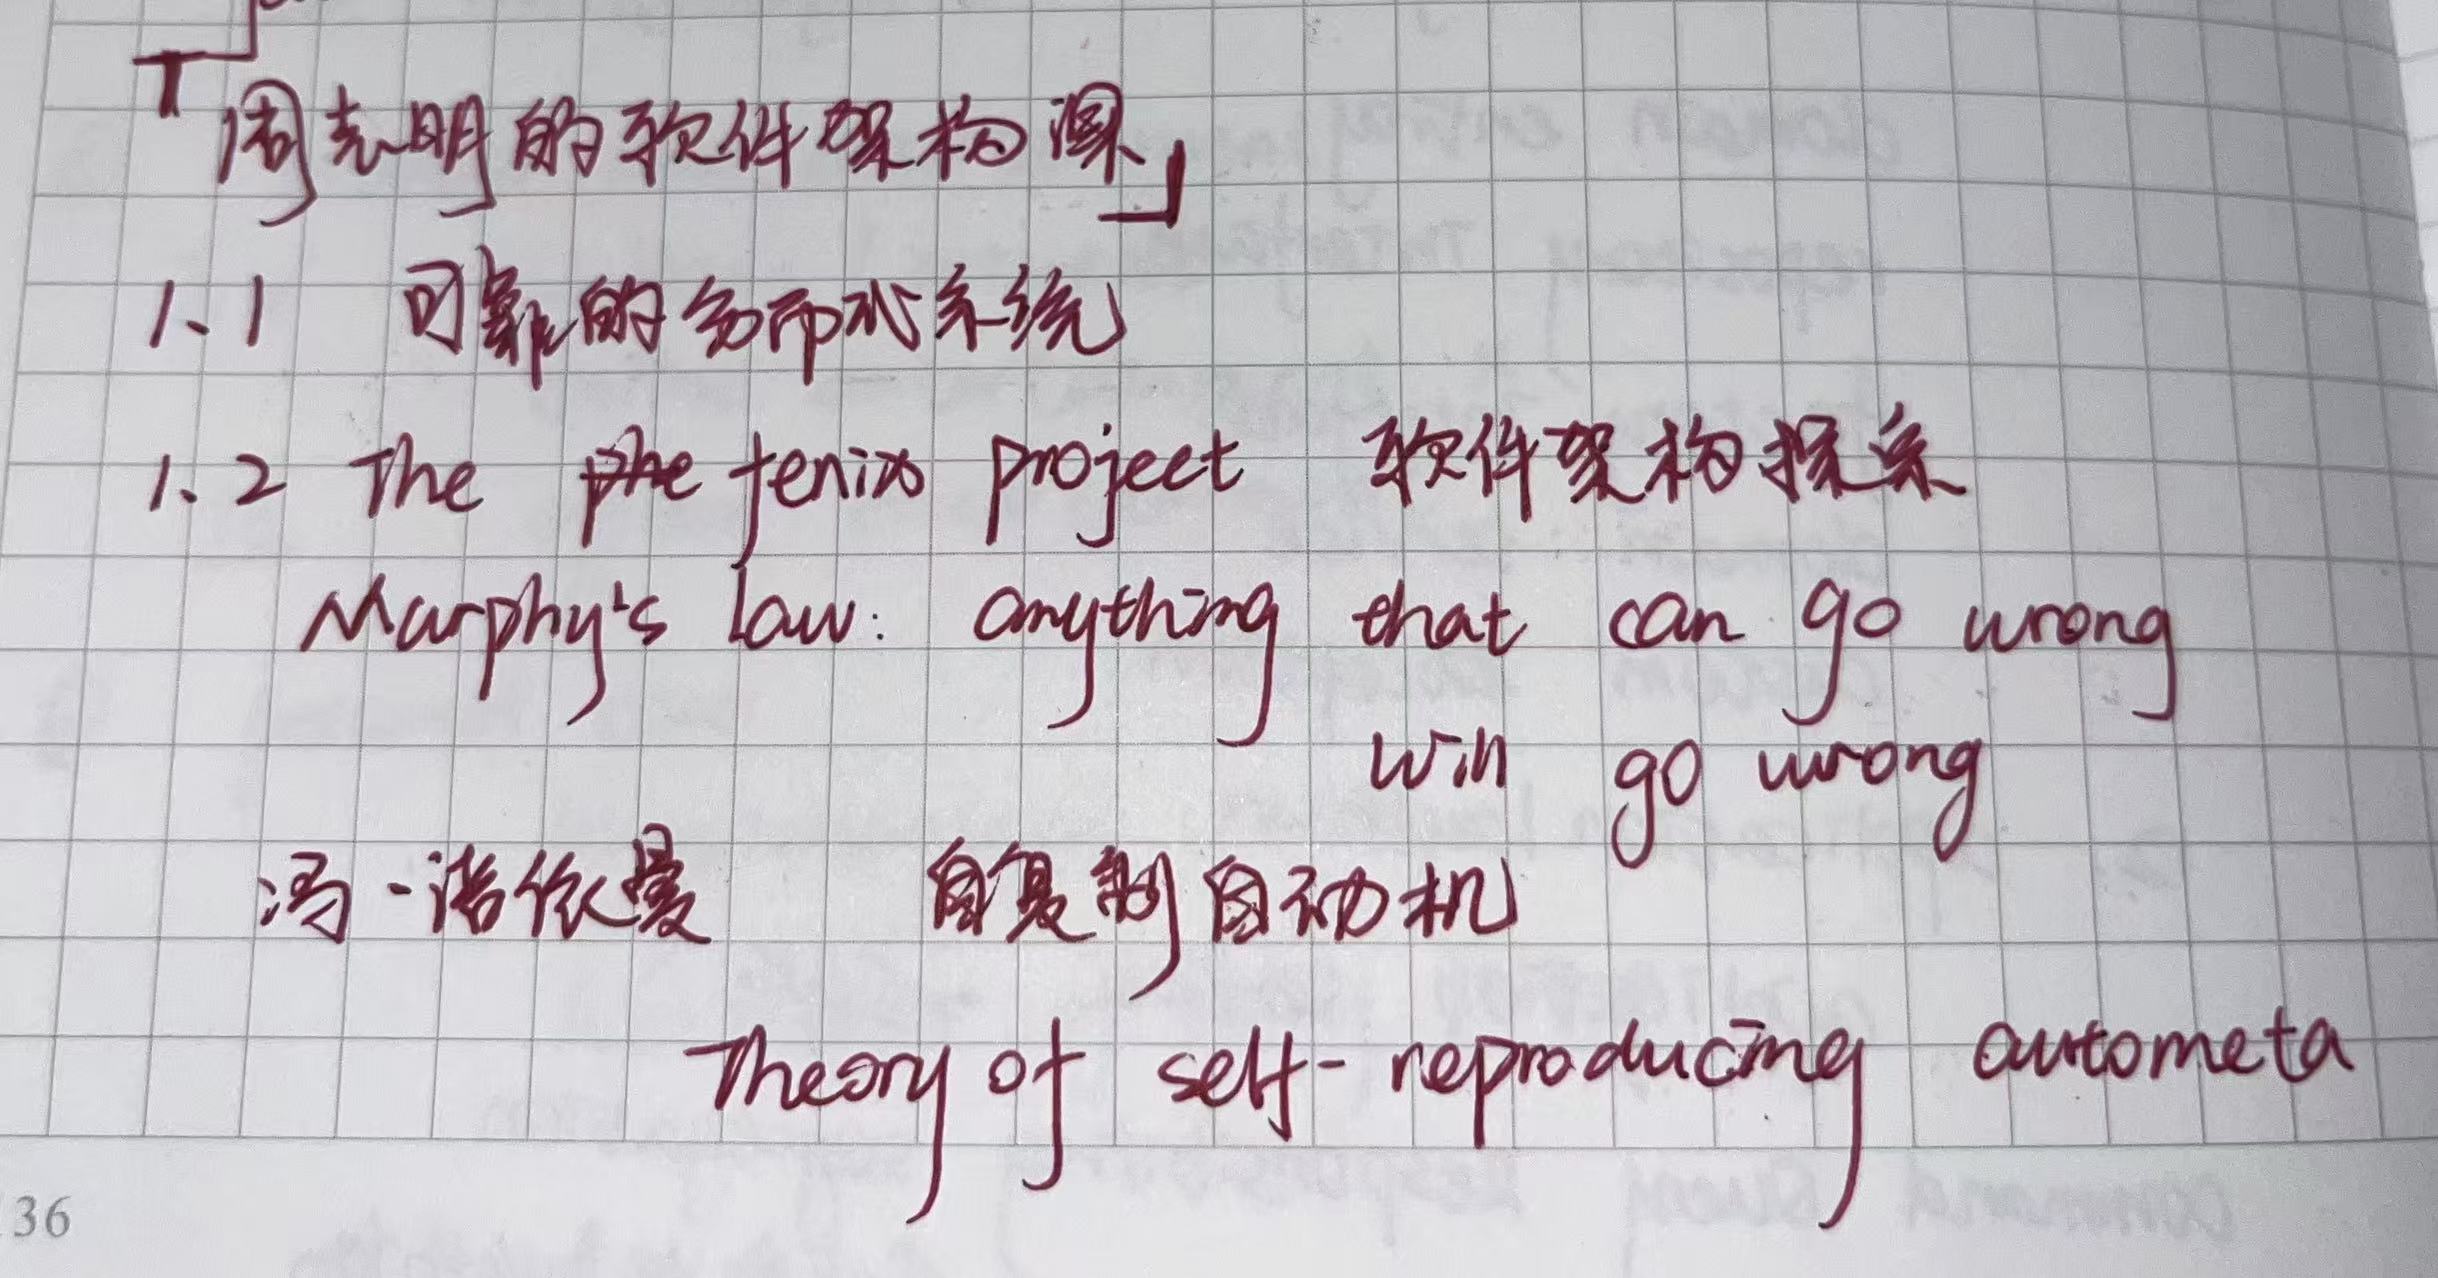 「周志明的软件架构课」
1.1 可靠的分布式系统
1.2 The fenix project 软件架构探索
Murphy's law: anything that can go wrong
will go wrong
冯·诺依曼 自复制自动机
Theory of self-reproducing autometa
136